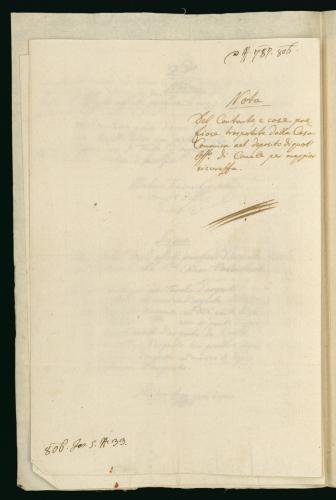 787. 806.
Nota
Del Contante e cose pre
ziose trasportate dalla Casa
Comunica nel deposito di quest
Off.° di Cavale per maggior
sicurezza.
806. 5. 33.